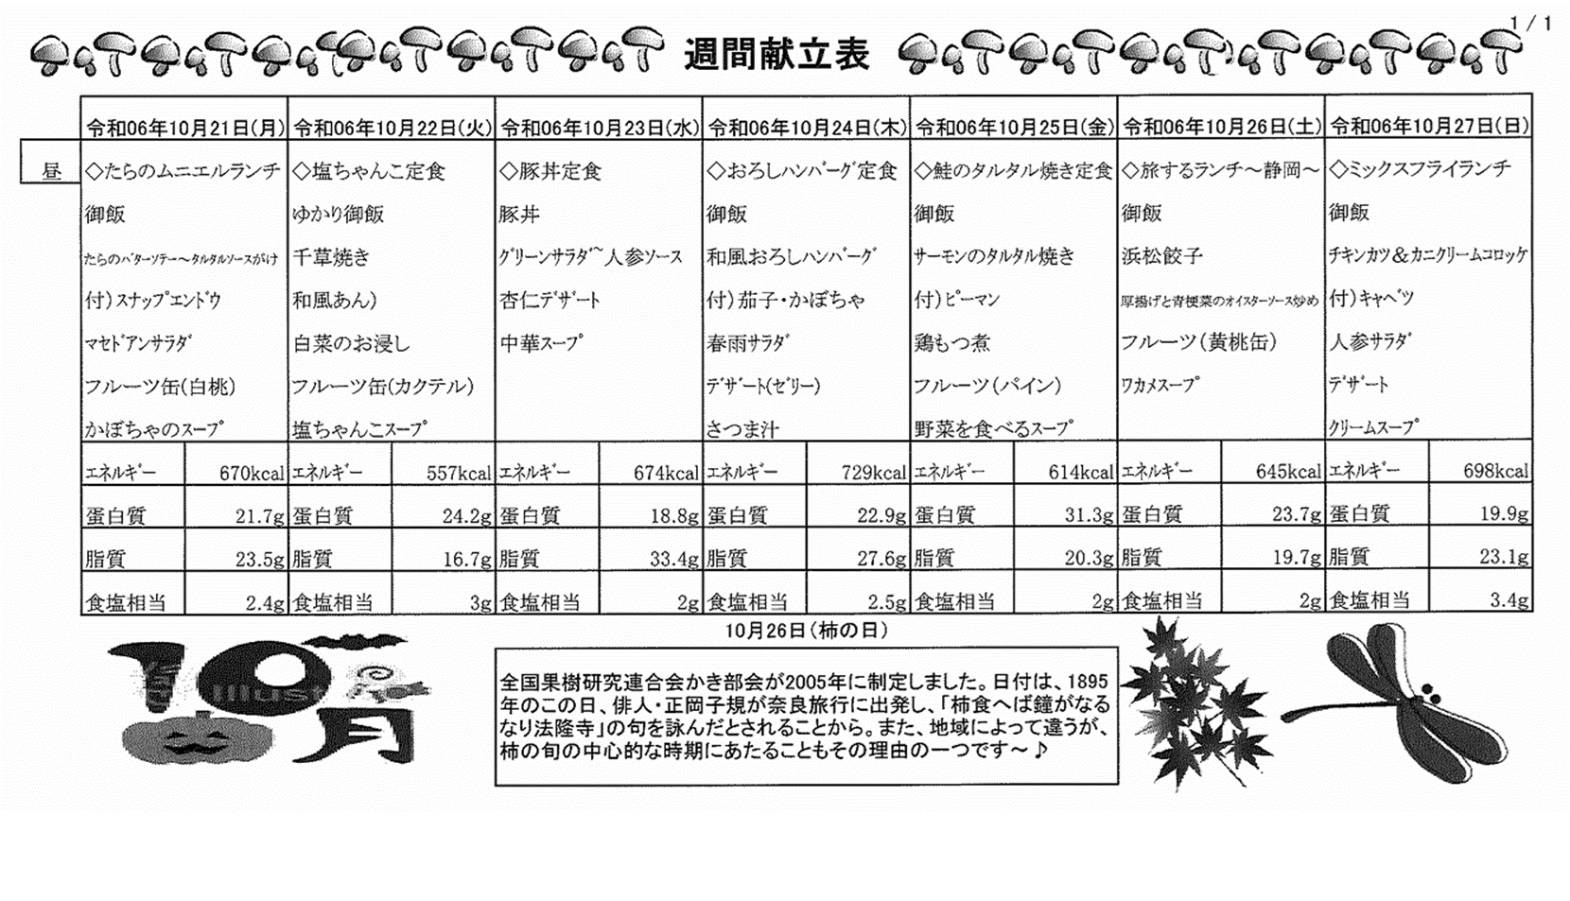 1/1
週間献立表
令和06年10月21日(月) 令和06年10月22日(火) 令和06年10月23日(水) 令和06年10月24日(木) 令和06年10月25日(金) 令和06年10月26日(土) 令和06年10月27日(日)
昼 ◇たらのムニエルランチ ◇塩ちゃんこ定食 ◇豚丼定食 ◇おろしﾊﾝﾊﾞｰｸﾞ定食 ◇鮭のタルタル焼き定食 ◇旅するランチ～静岡～ ◇ミックスフライランチ
御飯 ゆかり御飯 豚丼 御飯 御飯 御飯 御飯
たらのﾊﾞﾀｰｿﾃｰ～ﾀﾙﾀﾙｿｰｽがけ 千草焼き ｸﾞﾘｰﾝｻﾗﾀﾞ~人参ソース 和風おろしﾊﾝﾊﾞｰｸﾞ サーモンのタルタル焼き 浜松餃子 ﾁｷﾝｶﾂ＆ｶﾆｸﾘｰﾑｺﾛｯｹ
付）ｽﾅｯﾌﾟｴﾝﾄﾞｳ 和風あん） 杏仁ﾃﾞｻﾞｰﾄ 付）茄子・かぼちゃ 付）ﾋﾟｰﾏﾝ 厚揚げと青梗菜のｵｲｽﾀｰｿｰｽ炒め 付）ｷｬﾍﾞﾂ
ﾏｾﾄﾞｱﾝｻﾗﾀﾞ 白菜のお浸し 中華ｽｰﾌﾟ 春雨ｻﾗﾀﾞ 鶏もつ煮 フルーツ（黄桃缶） 人参ｻﾗﾀﾞ
フルーツ缶（白桃） フルーツ缶（カクテル） ﾃﾞｻﾞｰﾄ(ｾﾞﾘｰ) フルーツ（パイン） ﾜｶﾒｽｰﾌﾟ ﾃﾞｻﾞｰﾄ
かぼちゃのｽｰﾌﾟ 塩ちゃんこｽｰﾌﾟ さつま汁 野菜を食べるｽｰﾌﾟ ｸﾘｰﾑｽｰﾌﾟ
ｴﾈﾙｷﾞｰ 670kcal ｴﾈﾙｷﾞｰ 557kcal ｴﾈﾙｷﾞｰ 674kcal ｴﾈﾙｷﾞｰ 729kcal ｴﾈﾙｷﾞｰ 614kcal ｴﾈﾙｷﾞｰ 645kcal ｴﾈﾙｷﾞｰ 698kcal
蛋白質 21.7g 蛋白質 24.2g 蛋白質 18.8g 蛋白質 22.9g 蛋白質 31.3g 蛋白質 23.7g 蛋白質 19.9g
脂質 23.5g 脂質 16.7g 脂質 33.4g 脂質 27.6g 脂質 20.3g 脂質 19.7g 脂質 23.1g
食塩相当 2.4g 食塩相当 3g 食塩相当 2g 食塩相当 2.5g 食塩相当 2g 食塩相当 2g 食塩相当 3.4g
10月26日（柿の日）
全国果樹研究連合会かき部会が2005年に制定しました。日付は、1895
年のこの日、俳人・正岡子規が奈良旅行に出発し、「柿食へば鐘がなる
なり法隆寺」の句を詠んだとされることから。また、地域によって違うが、
柿の旬の中心的な時期にあたることもその理由の一つです～♪
10月